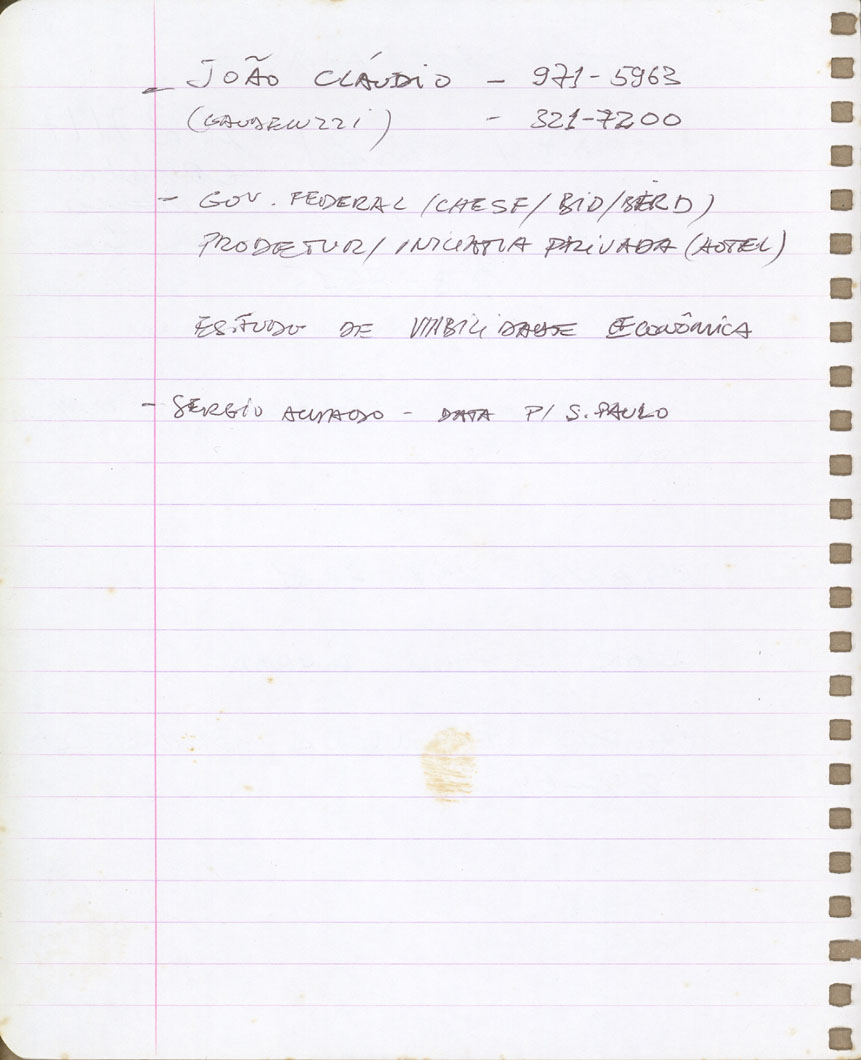 - JOÃO CLÁUDIO - 971-5963
(GAUDENZZI) - 321-7200
- GOV. FEDERAL (CHESF/BID/BIRD)
PRODETUR/ INICIATIVA PRIVADA (HOTEL)
ESTUDO DE VIABILIDADE ECONÔMICA
- SÉRGIO - DATA P/ S. PAULO